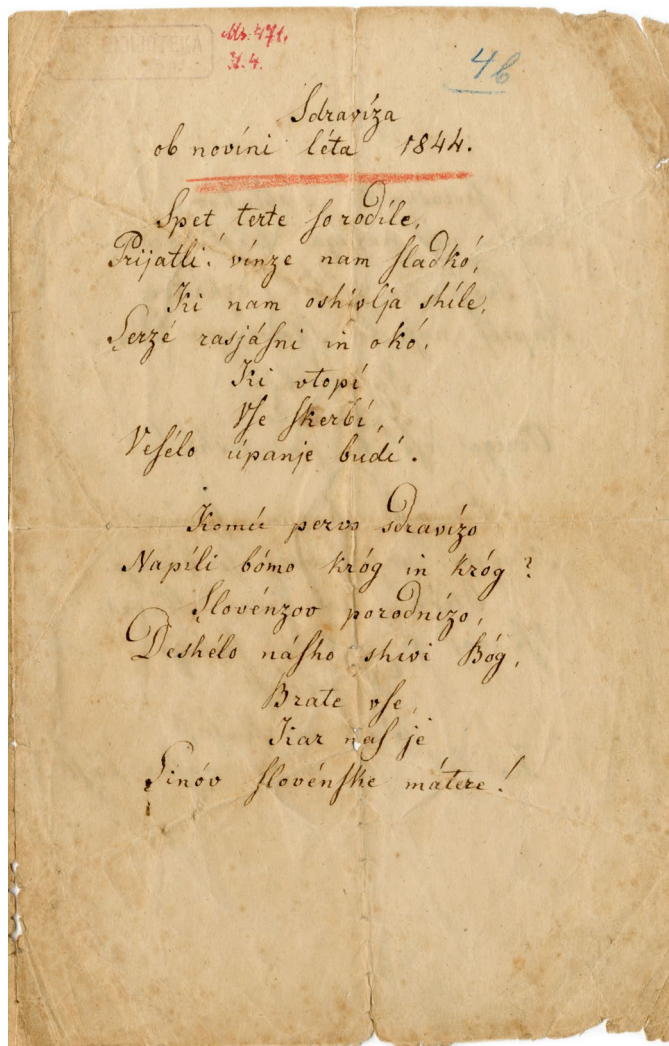 Ms. 471,
I. 4.
4b
Sdravíza
ob novíni léta 1844.
Spet terte so rodíle,
Prijatli! vínze nam ſladkó,
Ki nam oshívlja shíle,
Serzé rasjáſni in okó,
Ki vtopí
Vſe ſkerbí,
Veſélo úpanje budí.
Komú pervo sdravízo
Napíli bómo króg in króg?
Slovénzov porodnízo,
Deshélo náſho shívi Bóg,
Brate vſe,
Kar naſ je
Sinóv ſlovénſke mátere!